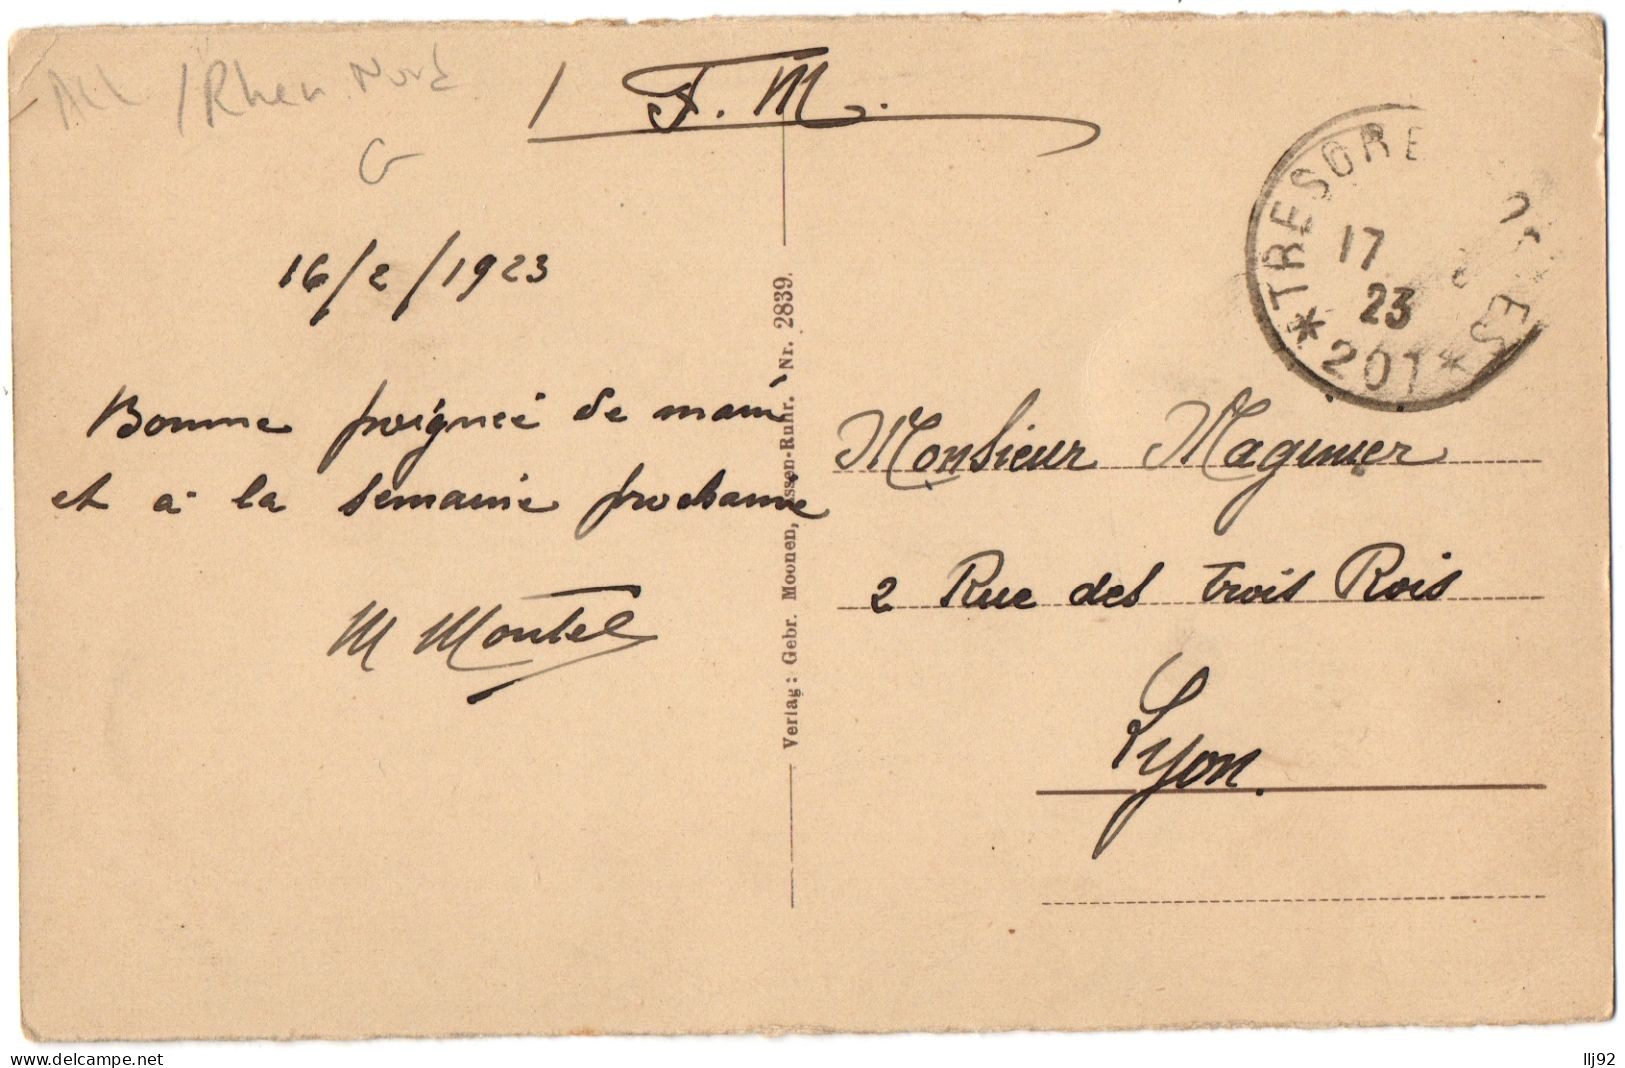 All / Rhen. Nord
G
F. M.
TRESOR E POSTES
17
23
* 201 *
16/2/1923
Bonne poignée de main
et à la semaine prochaine
M Montel
Verlag: Gebr. Moonen, Essen-Ruhr. Nr. 2839.
Monsieur Maginier
2 Rue des Trois Rois
Lyon.
delcampe.net
llj92